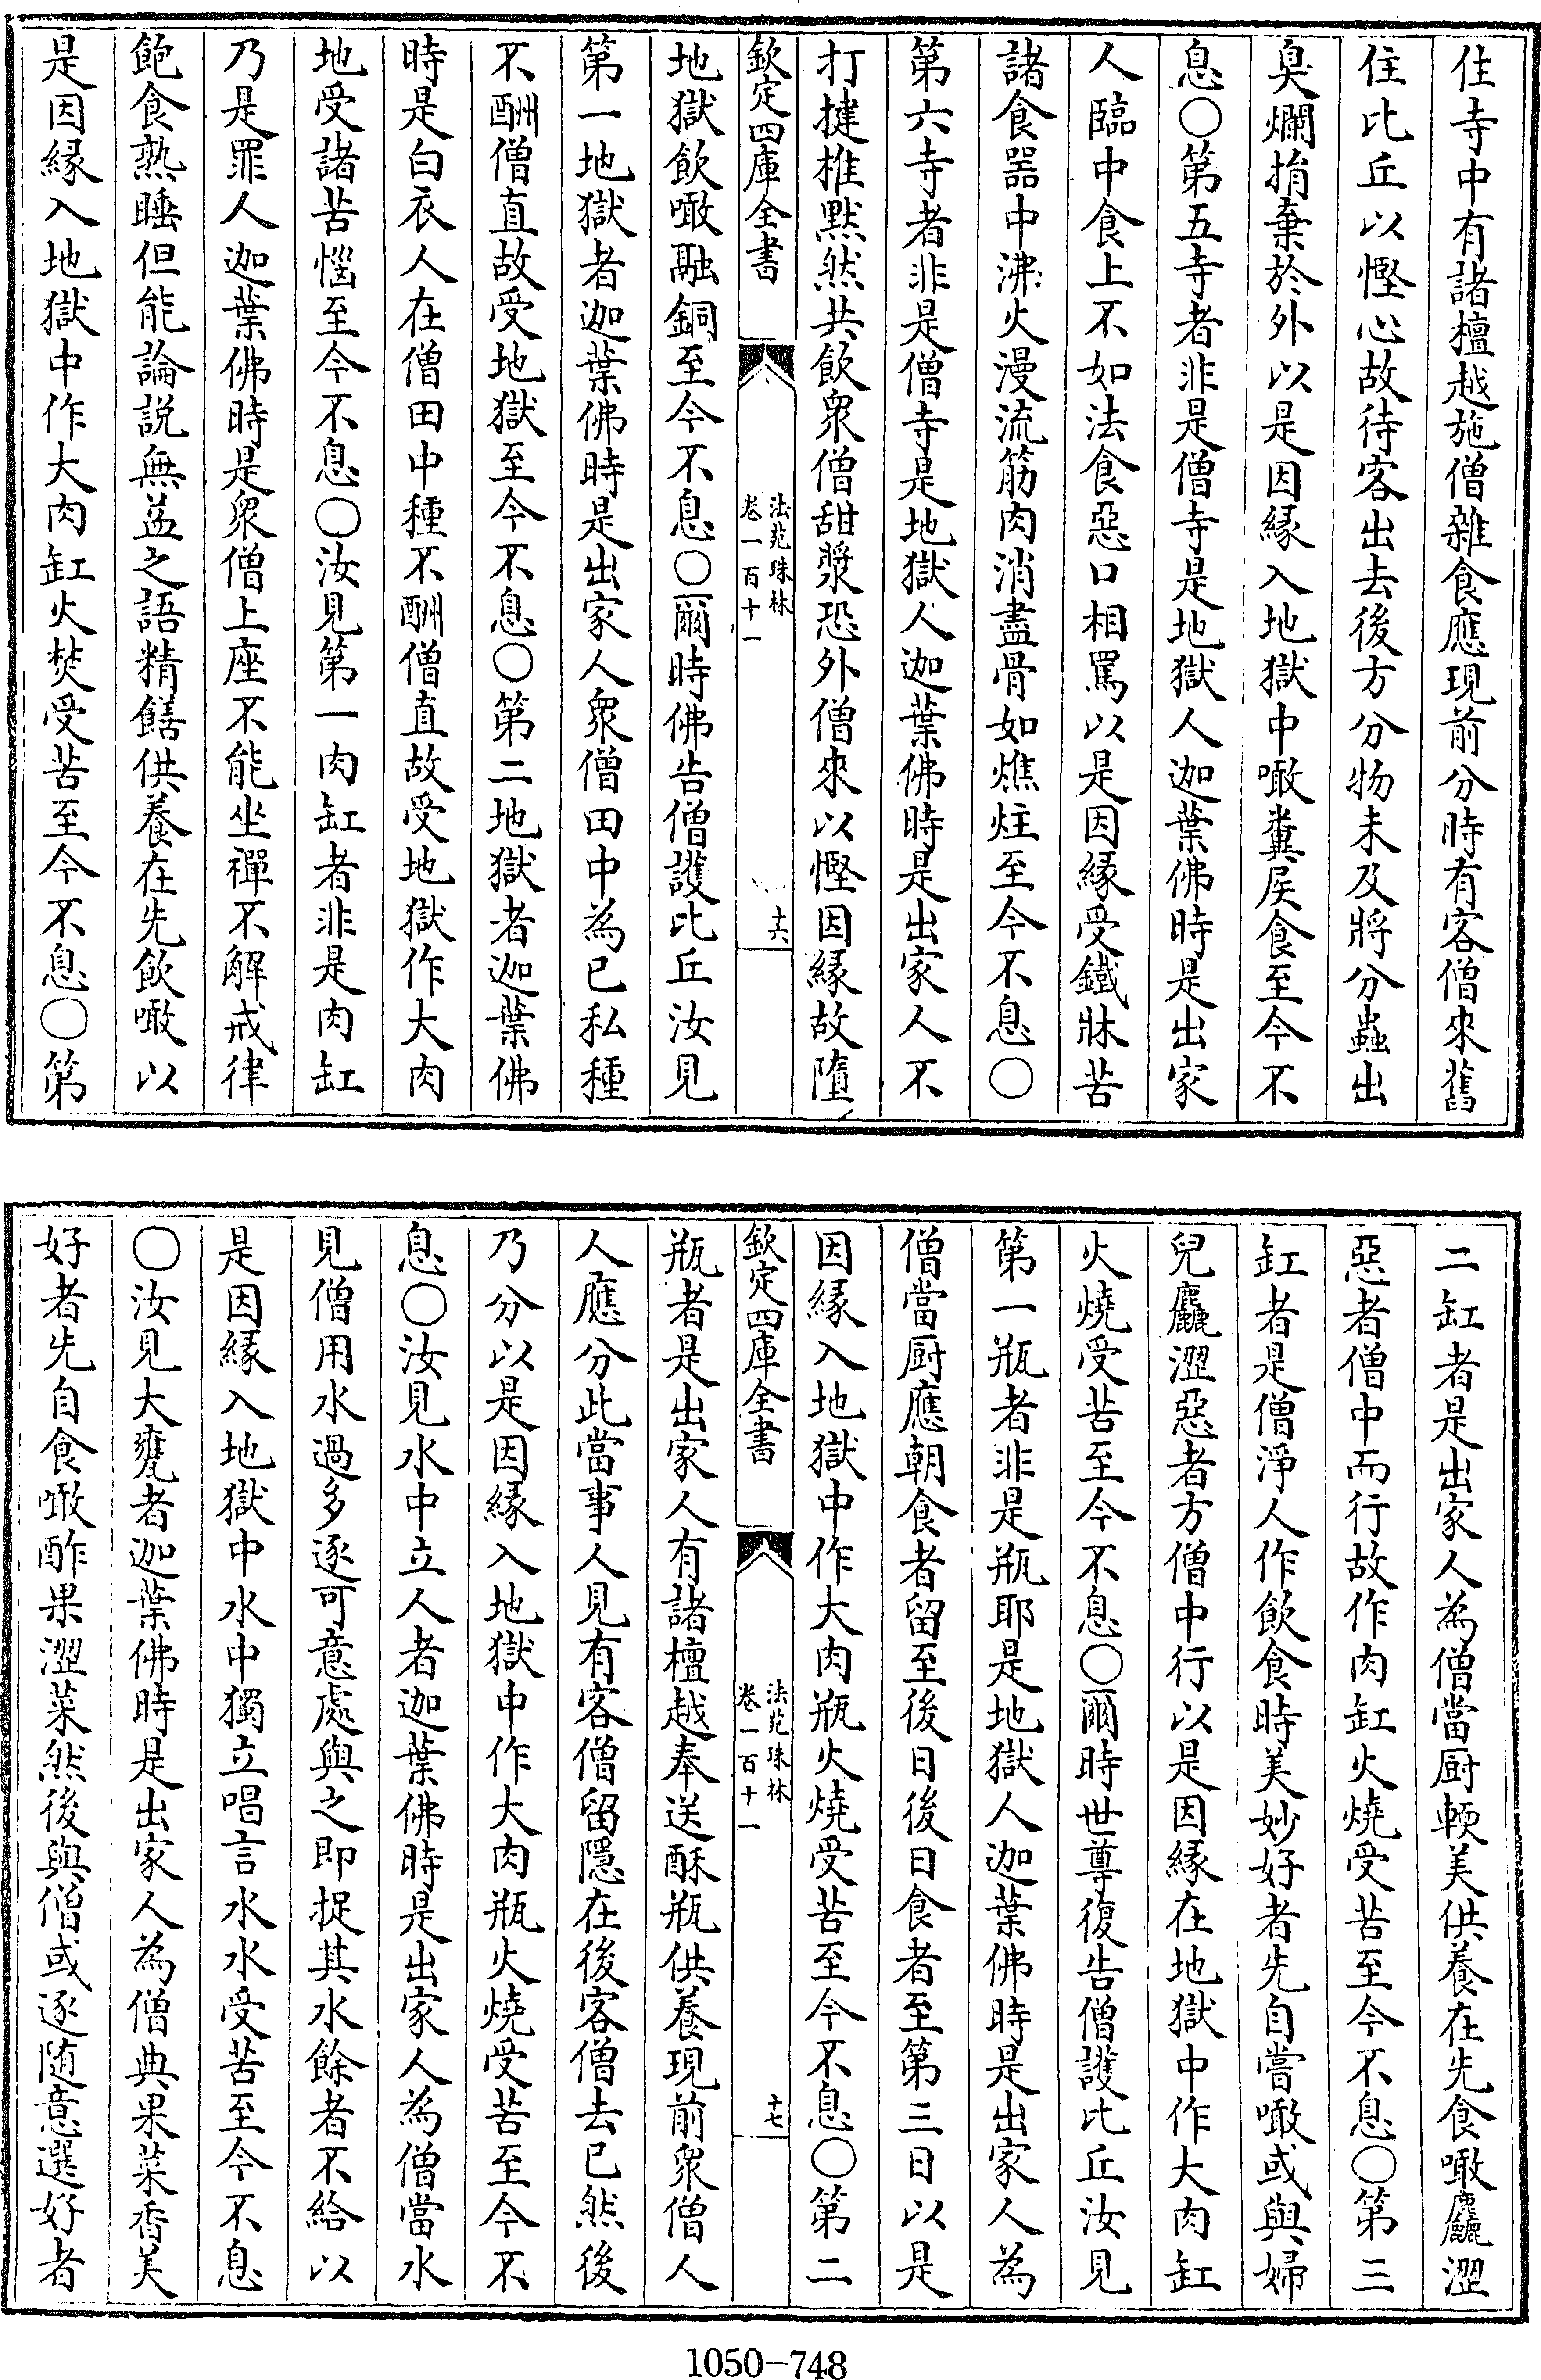 住寺中有諸檀越施僧雜食應現前分時有客僧來舊
住比丘以慳心故待客出去後方分物未及將分蟲出
臭爛捐棄於外以是因緣入地獄中噉糞屎食至今不
息○第五寺者非是僧寺是地獄人迦葉佛時是出家
人臨中食上不如法食惡口相罵以是因緣受鐵牀苦
諸食器中沸火漫流筋肉消盡骨如燋炷至今不息○
第六寺者非是僧寺是地獄人迦葉佛時是出家人不
打揵椎默然共飲衆僧甜漿恐外僧來以慳因緣故墮
欽定四庫全書
法苑珠林
卷一百十一
十六
地獄飲噉融銅至今不息○爾時佛告僧護比丘汝見
第一地獄者迦葉佛時是出家人衆僧田中為已私種
不酬僧直故受地獄至今不息○第二地獄者迦葉佛
時是白衣人在僧田中種不酬僧直故受地獄作大肉
地受諸苦惱至今不息○汝見第一肉缸者非是肉缸
乃是罪人迦葉佛時是衆僧上座不能坐禪不解戒律
飽食熟睡但能論說無益之語精饍供養在先飲噉以
是因緣入地獄中作大肉缸火焚受苦至今不息○第
二缸者是出家人為僧當厨輭美供養在先食噉麤澀
惡者僧中而行故作肉缸火燒受苦至今不息○第三
缸者是僧淨人作飲食時美妙好者先自嘗噉或與婦
兒麤澀惡者方僧中行以是因緣在地獄中作大肉缸
火燒受苦至今不息○爾時世尊復告僧護比丘汝見
第一瓶者非是瓶耶是地獄人迦葉佛時是出家人為
僧當厨應朝食者留至後日後日食者至第三日以是
因緣入地獄中作大肉瓶火燒受苦至今不息○第二
欽定四庫全書
法苑珠林
卷一百十一
十七
瓶者是出家人有諸檀越奉送酥瓶供養現前衆僧人
人應分此當事人見有客僧留隱在後客僧去已然後
乃分以是因緣入地獄中作大肉瓶火燒受苦至今不
息○汝見水中立人者迦葉佛時是出家人為僧當水
見僧用水過多逐可意處與之即捉其水餘者不給以
是因緣入地獄中水中獨立唱言水水受苦至今不息
○汝見大甕者迦葉佛時是出家人為僧典果菜香美
好者先自食噉酢果澀菜然後與僧或逐随意選好者
1050-748